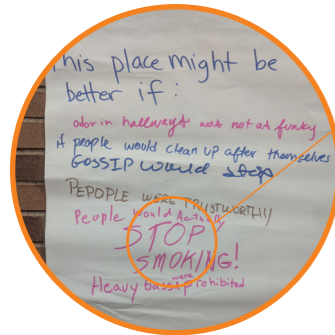 This place might be
better if:
odor in hallways was not as funky
if people would clean up after themselves
GOSSIP would stop
PEPOPLE WERE TRUSTWORTHY
People would Actually
STOP
SMOKING!
were
Heavy bass prohibited